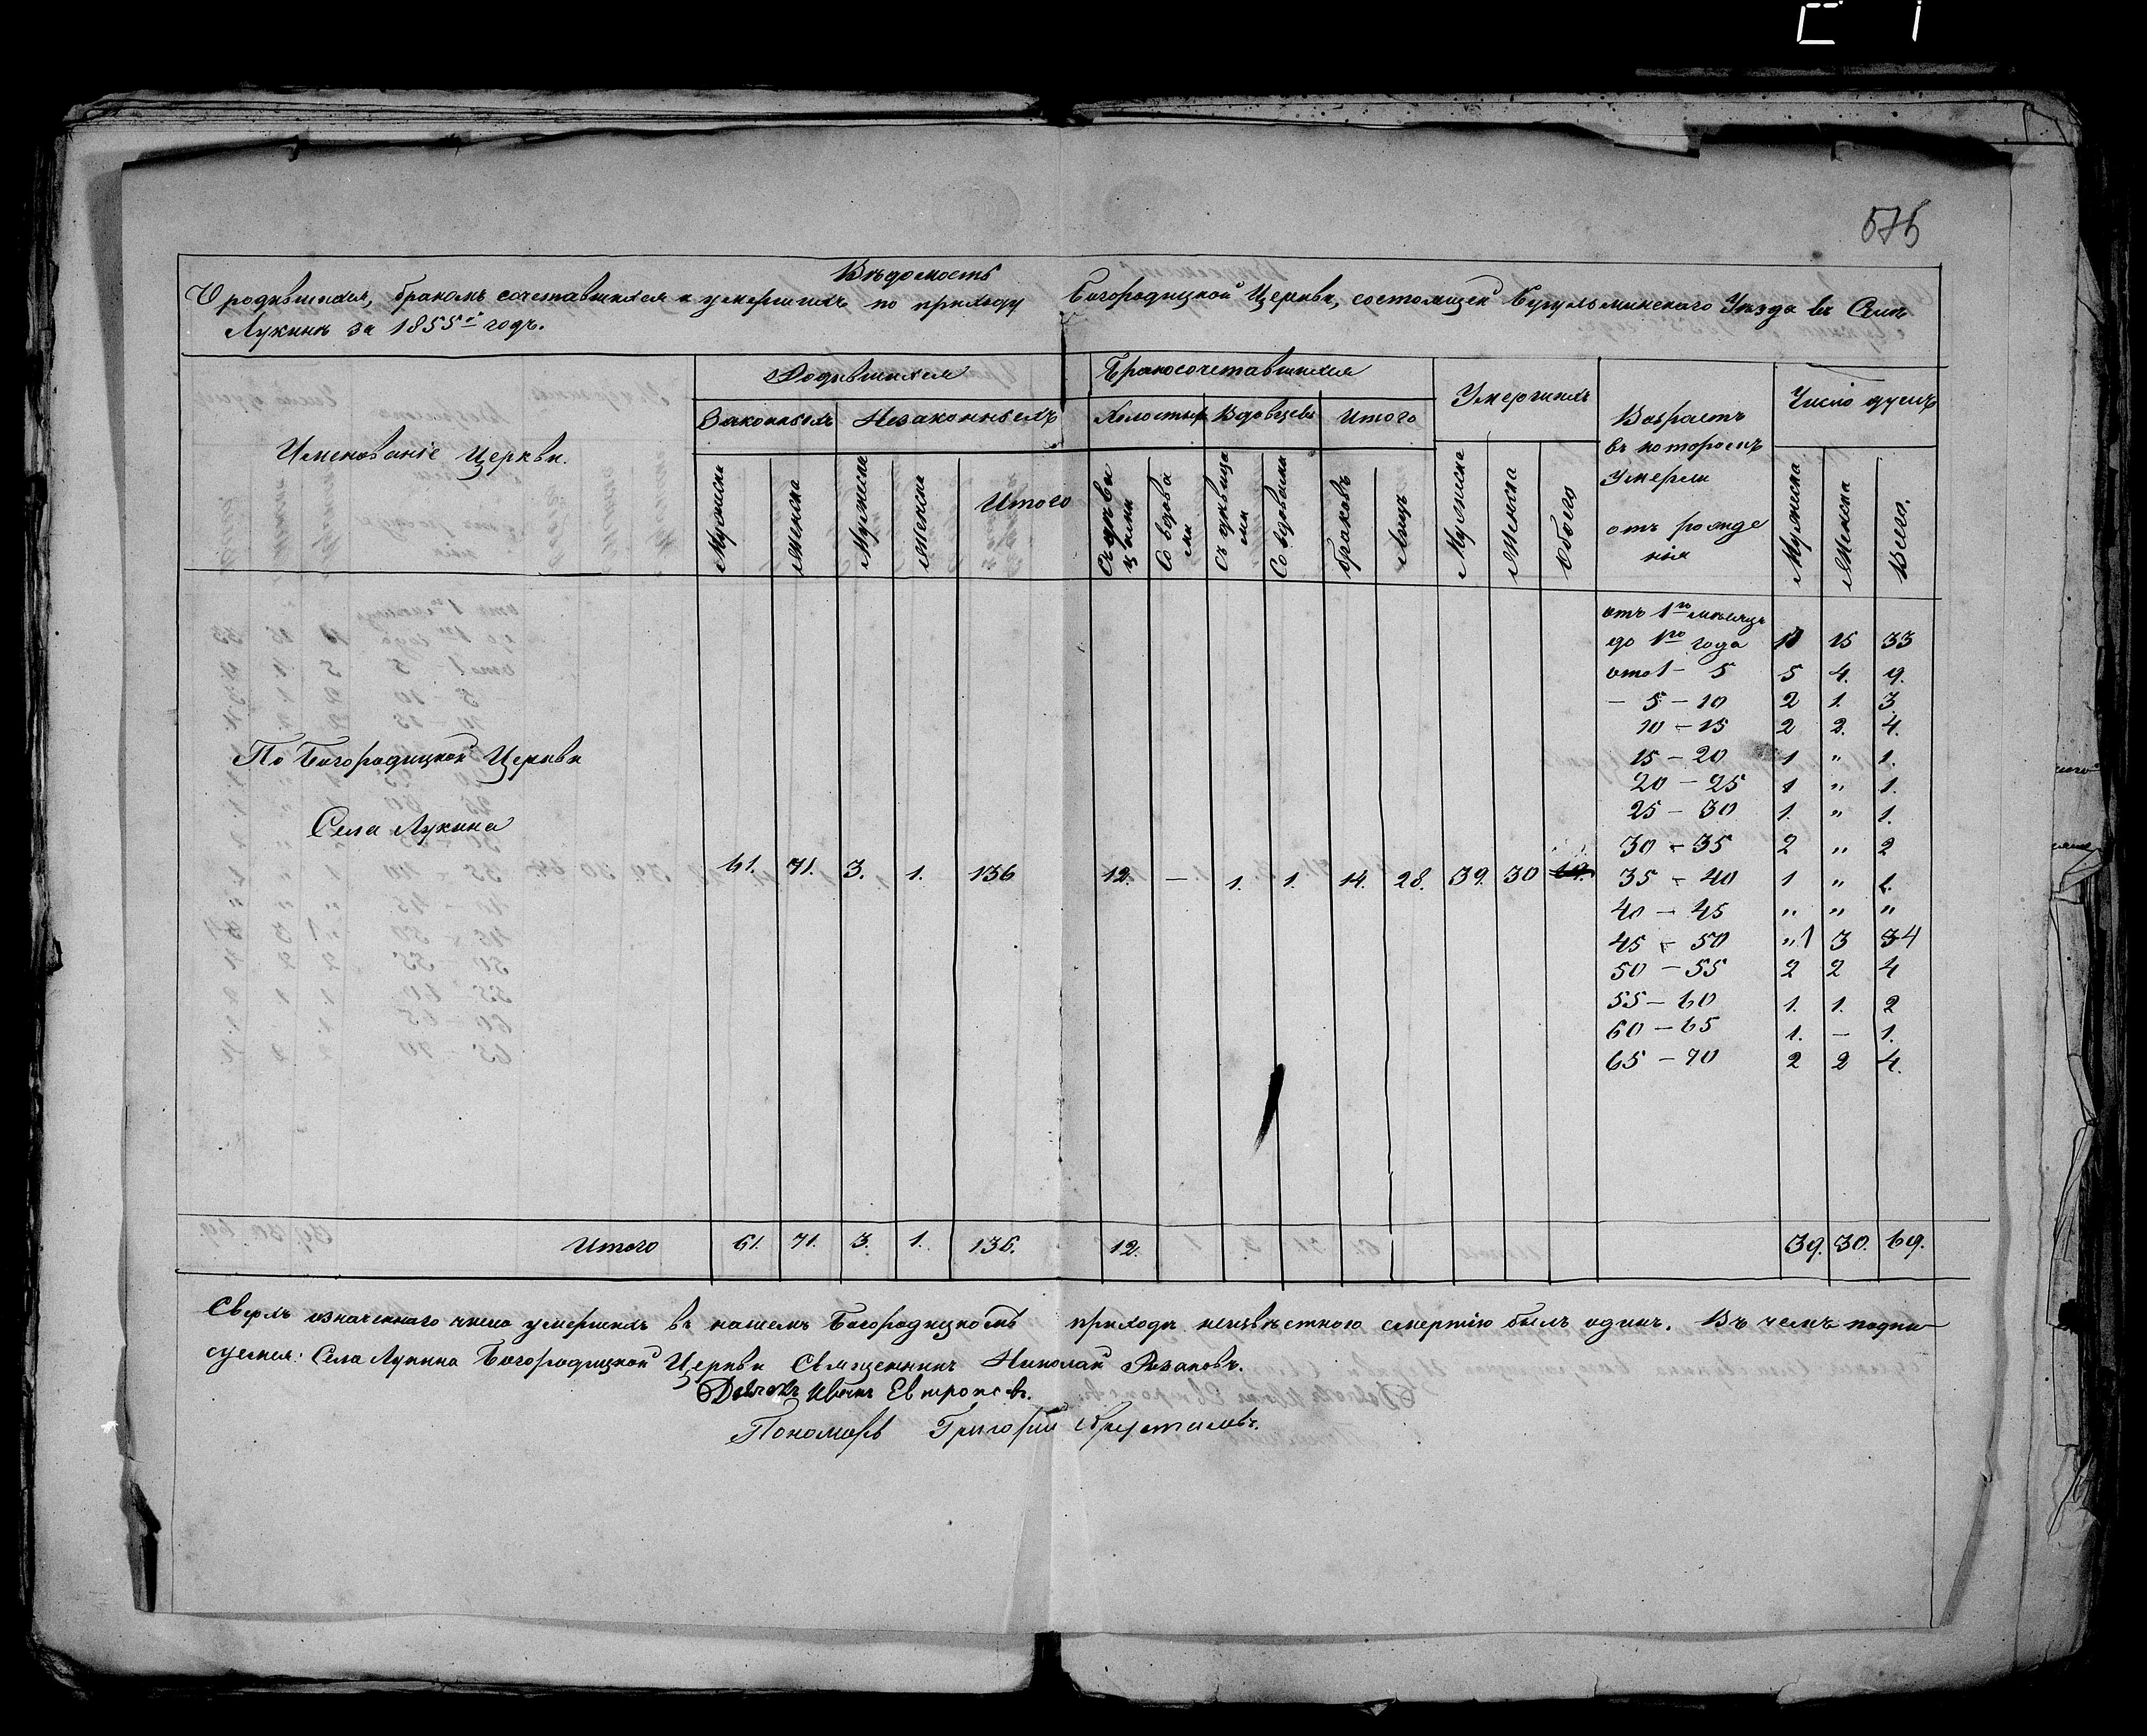 575
Вѣдомость
О родившихся, бракомъ сочетавшихся и умершихъ по приходу Богородицкой Церкви, состоящей Бугульминскаго Уѣзда въ Селѣ
Лукинѣ за 1855й годъ.
Именованіе Церкви.
Родившихся
Бракосочетавшихся
Умершихъ
Возрастъ въ которомъ умерли отъ рожденія
Число душъ
Законныхъ Незаконныхъ Итого
Холостыхъ Вдовцевъ Итого
Мужеска Женска Мужеска Женска
Съ дѣвицами Со вдовами Съ дѣвицами Со вдовами браковъ Лицъ
Мужеска Женска Обоего
Мужеска Женска Всего.
отъ 1го мѣсяца
до 1го года 18 15 33
отъ 1 - 5 5 4. 9.
- 5 - 10 2 1. 3.
10 - 15 2 2. 4.
По Богородицкой Церкви
15 - 20 1 " 1.
20 - 25 1 " 1.
Села Лукина
25 - 30 1. " 1.
30 - 35 2 " 2
61. 71. 3. 1. 136 12. — 1. 1. 14. 28. 39. 30 69. 35 - 40 1 " 1.
40 - 45 " " "
45 - 50 " 1 3 3 4
50 - 55 2 2 4
55 - 60 1. 1. 2
60 - 65 1. - 1.
65 - 70 2 2 4.
Итого 61. 71. 3. 1. 136. 12. 39. 30. 69.
Сверхъ означеннаго числа умершихъ въ нашемъ Богородицкомъ приходѣ неизвѣстною смертію былъ одинъ. Въ чемъ подпи-
суемся: Села Лукина Богородицкой Церкви Священникъ Николай
Дьячокъ Иванъ Евтроповъ.
Пономарь Григорій